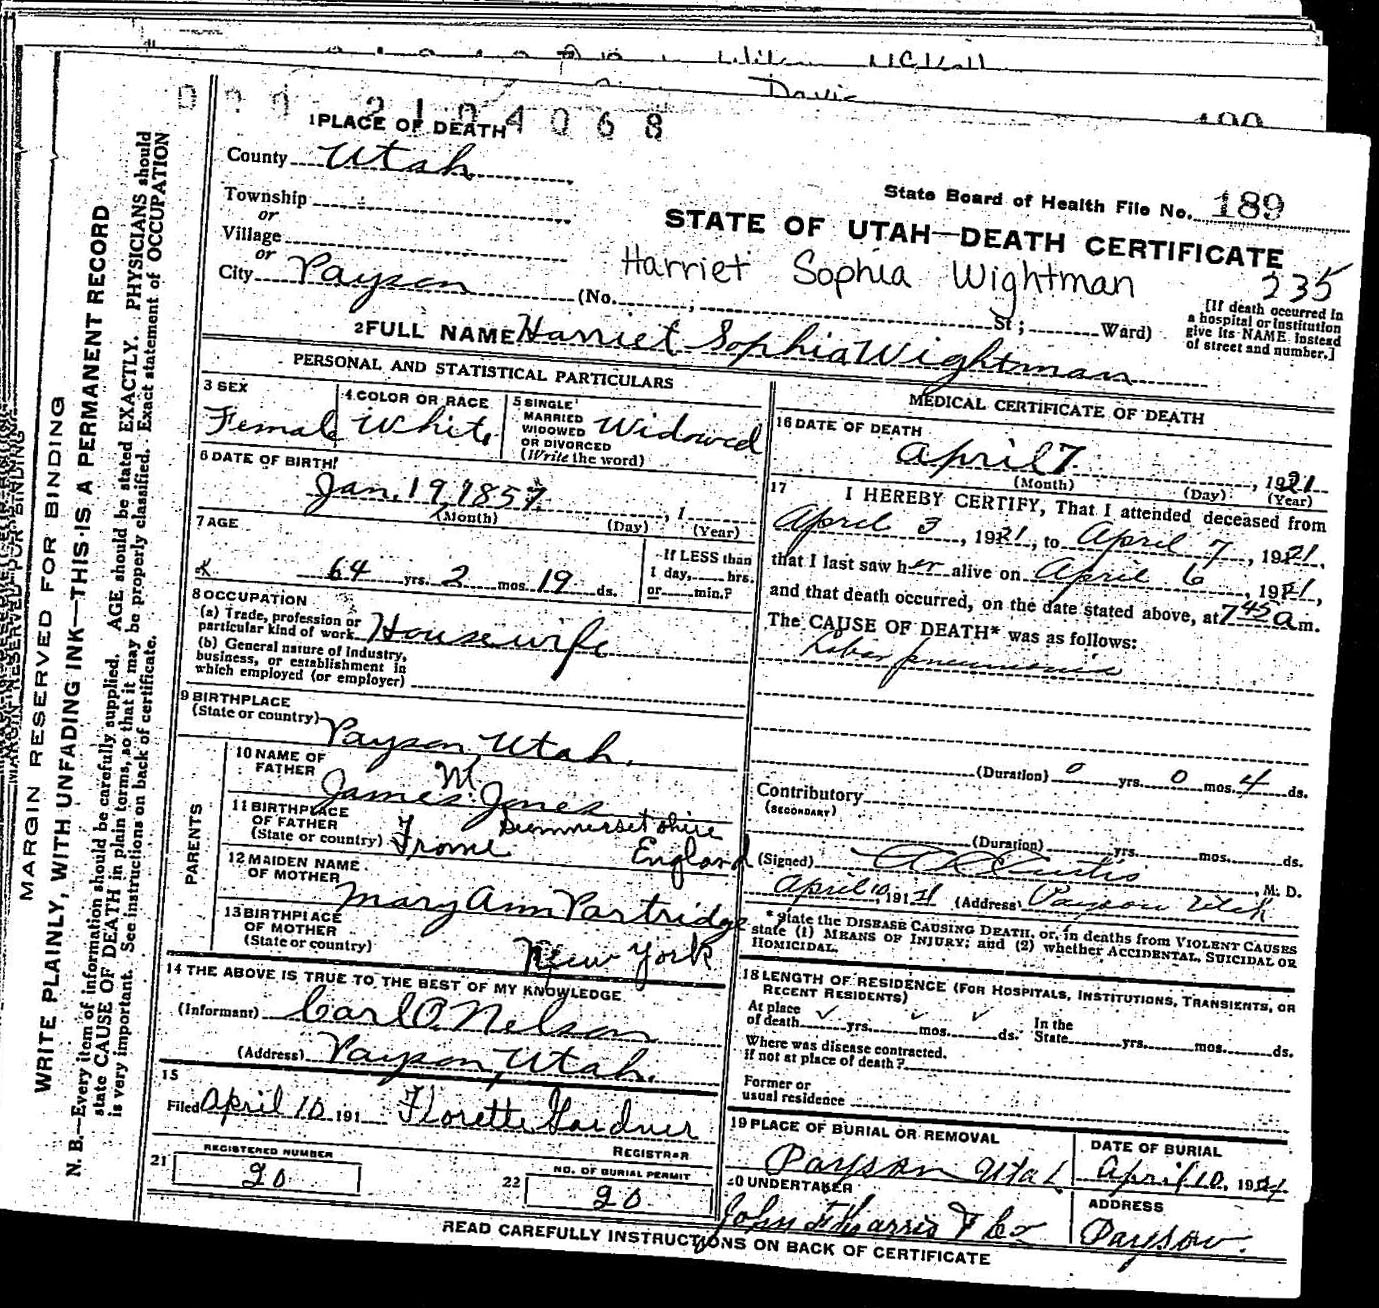 2104068
1 PLACE OF DEATH
County Utah
Township
or
Village
or
City Payson (No. ; St ; Ward)
State Board of Health File No. 189
STATE OF UTAH—DEATH CERTIFICATE
Harriet Sophia Wightman
235
[If death occurred in
a hospital or institution
give its NAME instead
of street and number.]
2 FULL NAME Harriet Sophia Wightman
PERSONAL AND STATISTICAL PARTICULARS
3 SEX
Female
4 COLOR OR RACE
White
5 SINGLE
MARRIED
WIDOWED
OR DIVORCED
(Write the word)
Widowed
6 DATE OF BIRTH
Jan. 19 1857, 1
(Month) (Day) (Year)
7 AGE
64 yrs. 2 mos. 19 ds.
If LESS than
1 day, hrs.
or min.?
8 OCCUPATION
(a) Trade, profession or
particular kind of work Housewife
(b) General nature of industry,
business, or establishment in
which employed (or employer)
9 BIRTHPLACE
(State or country) Payson Utah.
PARENTS
10 NAME OF
FATHER
James M. Jones
11 BIRTHPLACE
OF FATHER
(State or country) Frome Summersetshire
England
12 MAIDEN NAME
OF MOTHER
Mary Ann Partridge
13 BIRTHPLACE
OF MOTHER
(State or country) New York
14 THE ABOVE IS TRUE TO THE BEST OF MY KNOWLEDGE
(Informant) Carl O. Nelson
(Address) Payson, Utah.
15
Filed April 10 191 Florette Gardner
REGISTRAR
21 REGISTERED NUMBER
20
22 NO. OF BURIAL PERMIT
20
MEDICAL CERTIFICATE OF DEATH
16 DATE OF DEATH
April 7, 1921
(Month) (Day) (Year)
17 I HEREBY CERTIFY, That I attended deceased from
April 3, 1921, to April 7, 1921.
that I last saw her alive on April 6, 1921,
and that death occurred, on the date stated above, at 7 45 a m.
The CAUSE OF DEATH* was as follows:
Lobar pneumonia
(Duration) 0 yrs. 0 mos. 4 ds.
Contributory
(SECONDARY)
(Duration) yrs. mos. ds.
(Signed) Curtis, M. D.
April 10, 1921 (Address) Payson Utah
* State the DISEASE CAUSING DEATH, or, in deaths from VIOLENT CAUSES
state (1) MEANS OF INJURY; and (2) whether ACCIDENTAL, SUICIDAL OR
HOMICIDAL.
18 LENGTH OF RESIDENCE (FOR HOSPITALS, INSTITUTIONS, TRANSIENTS, OR
RECENT RESIDENTS)
At place
of death yrs. mos. ds.
In the
State yrs. mos. ds.
Where was disease contracted.
if not at place of death?
Former or
usual residence
19 PLACE OF BURIAL OR REMOVAL
Payson Utah
DATE OF BURIAL
April 10, 1921
20 UNDERTAKER
John F Harris & Co
ADDRESS
Payson.
READ CAREFULLY INSTRUCTIONS ON BACK OF CERTIFICATE
MARGIN RESERVED FOR BINDING
WRITE PLAINLY, WITH UNFADING INK—THIS IS A PERMANENT RECORD
N. B.—Every item of information should be carefully supplied. AGE should be stated EXACTLY. PHYSICIANS should
state CAUSE OF DEATH in plain terms, so that it may be properly classified. Exact statement of OCCUPATION
is very important. See instructions on back of certificate.